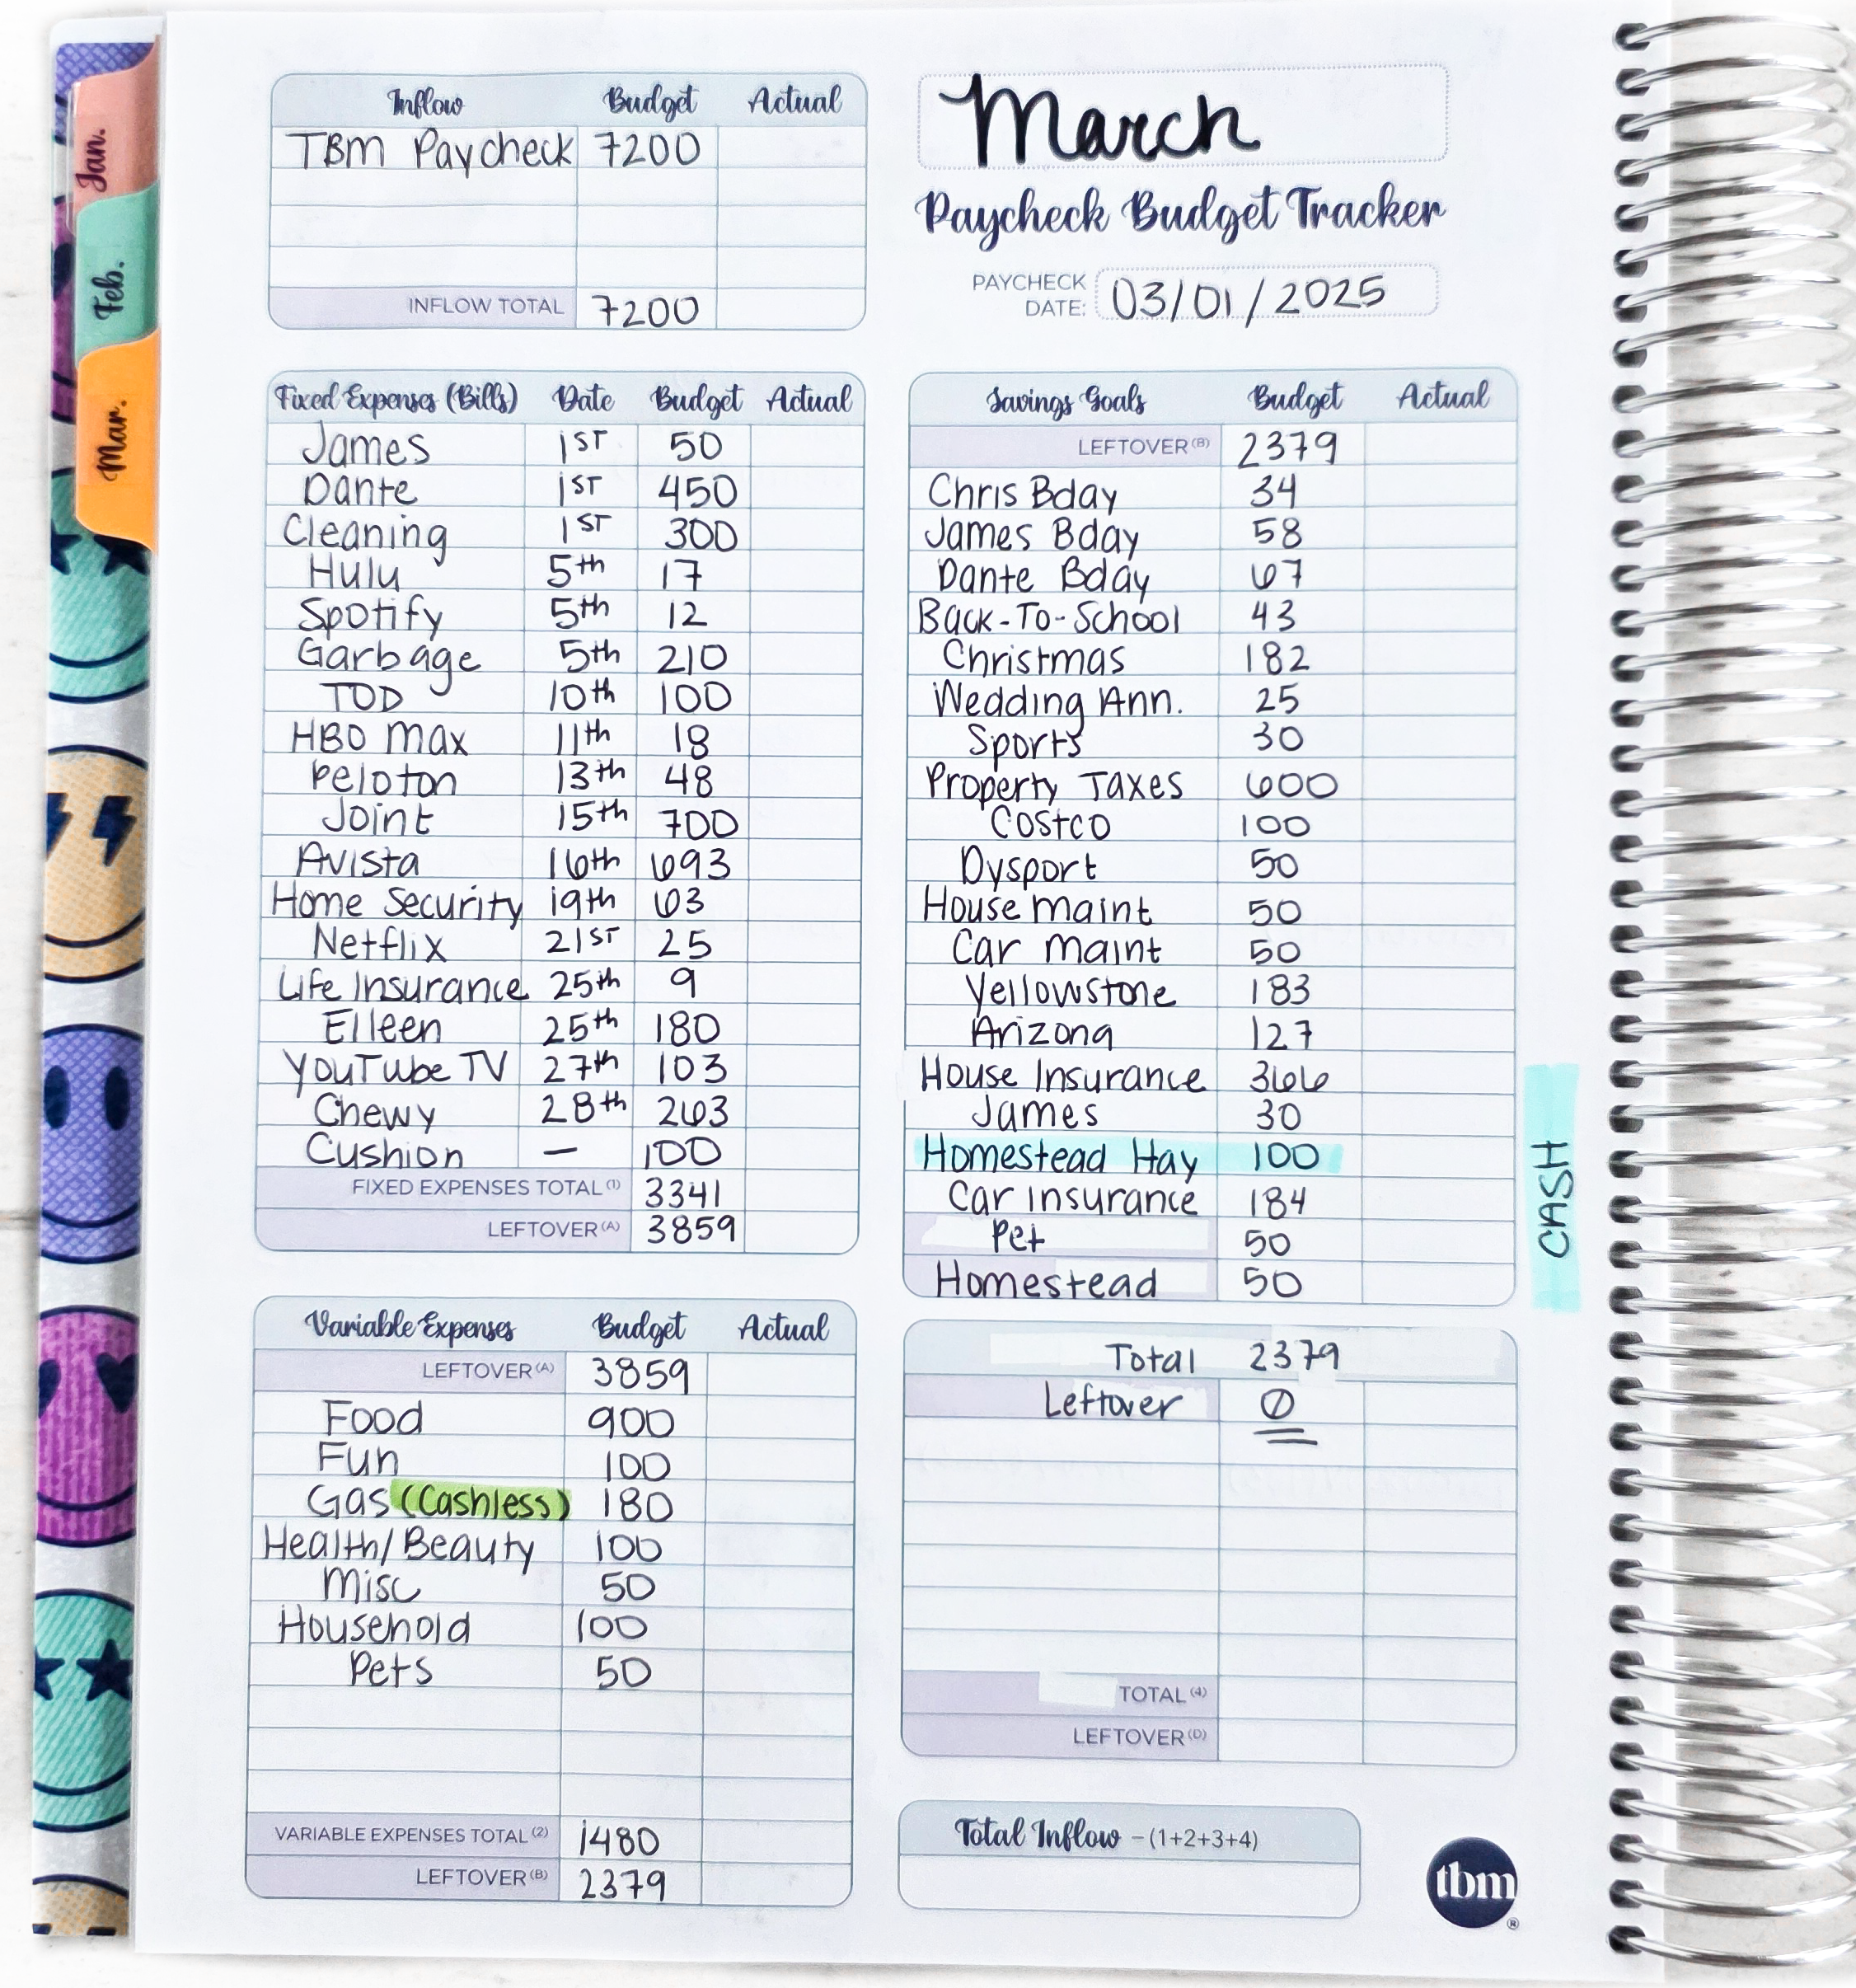 Jan.
Feb.
Mar.
Inflow Budget Actual
TBM Paycheck 7200
INFLOW TOTAL 7200
March
Paycheck Budget Tracker
PAYCHECK DATE: 03/01/2025
Fixed Expenses (Bills) Date Budget Actual
James 1ST 50
Dante 1ST 450
Cleaning 1ST 300
Hulu 5th 17
Spotify 5th 12
Garbage 5th 210
TOD 10th 100
HBO Max 11th 18
Peloton 13th 48
Joint 15th 700
Avista 16th 693
Home Security 19th 63
Netflix 21ST 25
Life Insurance 25th 9
Eileen 25th 180
YouTube TV 27th 103
Chewy 28th 263
Cushion — 100
FIXED EXPENSES TOTAL (1) 3341
LEFTOVER (A) 3859
Variable Expenses Budget Actual
LEFTOVER (A) 3859
Food 900
Fun 100
Gas (Cashless) 180
Health/Beauty 100
Misc 50
Household 100
Pets 50
VARIABLE EXPENSES TOTAL (2) 1480
LEFTOVER (B) 2379
Savings Goals Budget Actual
LEFTOVER (B) 2379
Chris Bday 34
James Bday 58
Dante Bday 67
Back-To-School 43
Christmas 182
Wedding Ann. 25
Sports 30
Property Taxes 600
Costco 100
Dysport 50
House Maint 50
Car Maint 50
Yellowstone 183
Arizona 127
House Insurance 366
James 30
Homestead Hay 100
Car Insurance 184
Pet 50
Homestead 50
CASH
Total 2379
Leftover 0
TOTAL (4)
LEFTOVER (D)
Total Inflow - (1+2+3+4)
tbm
®